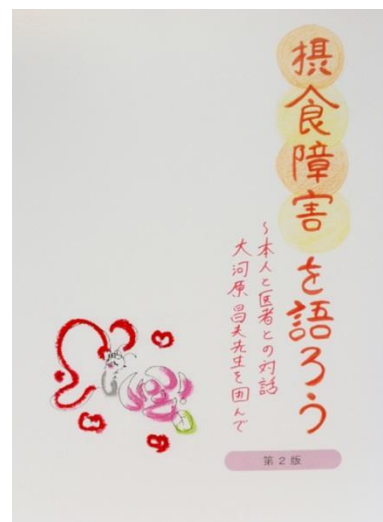 摂食障害を語ろう
～本人と医者との対話
大河原昌夫先生を囲んで
第２版